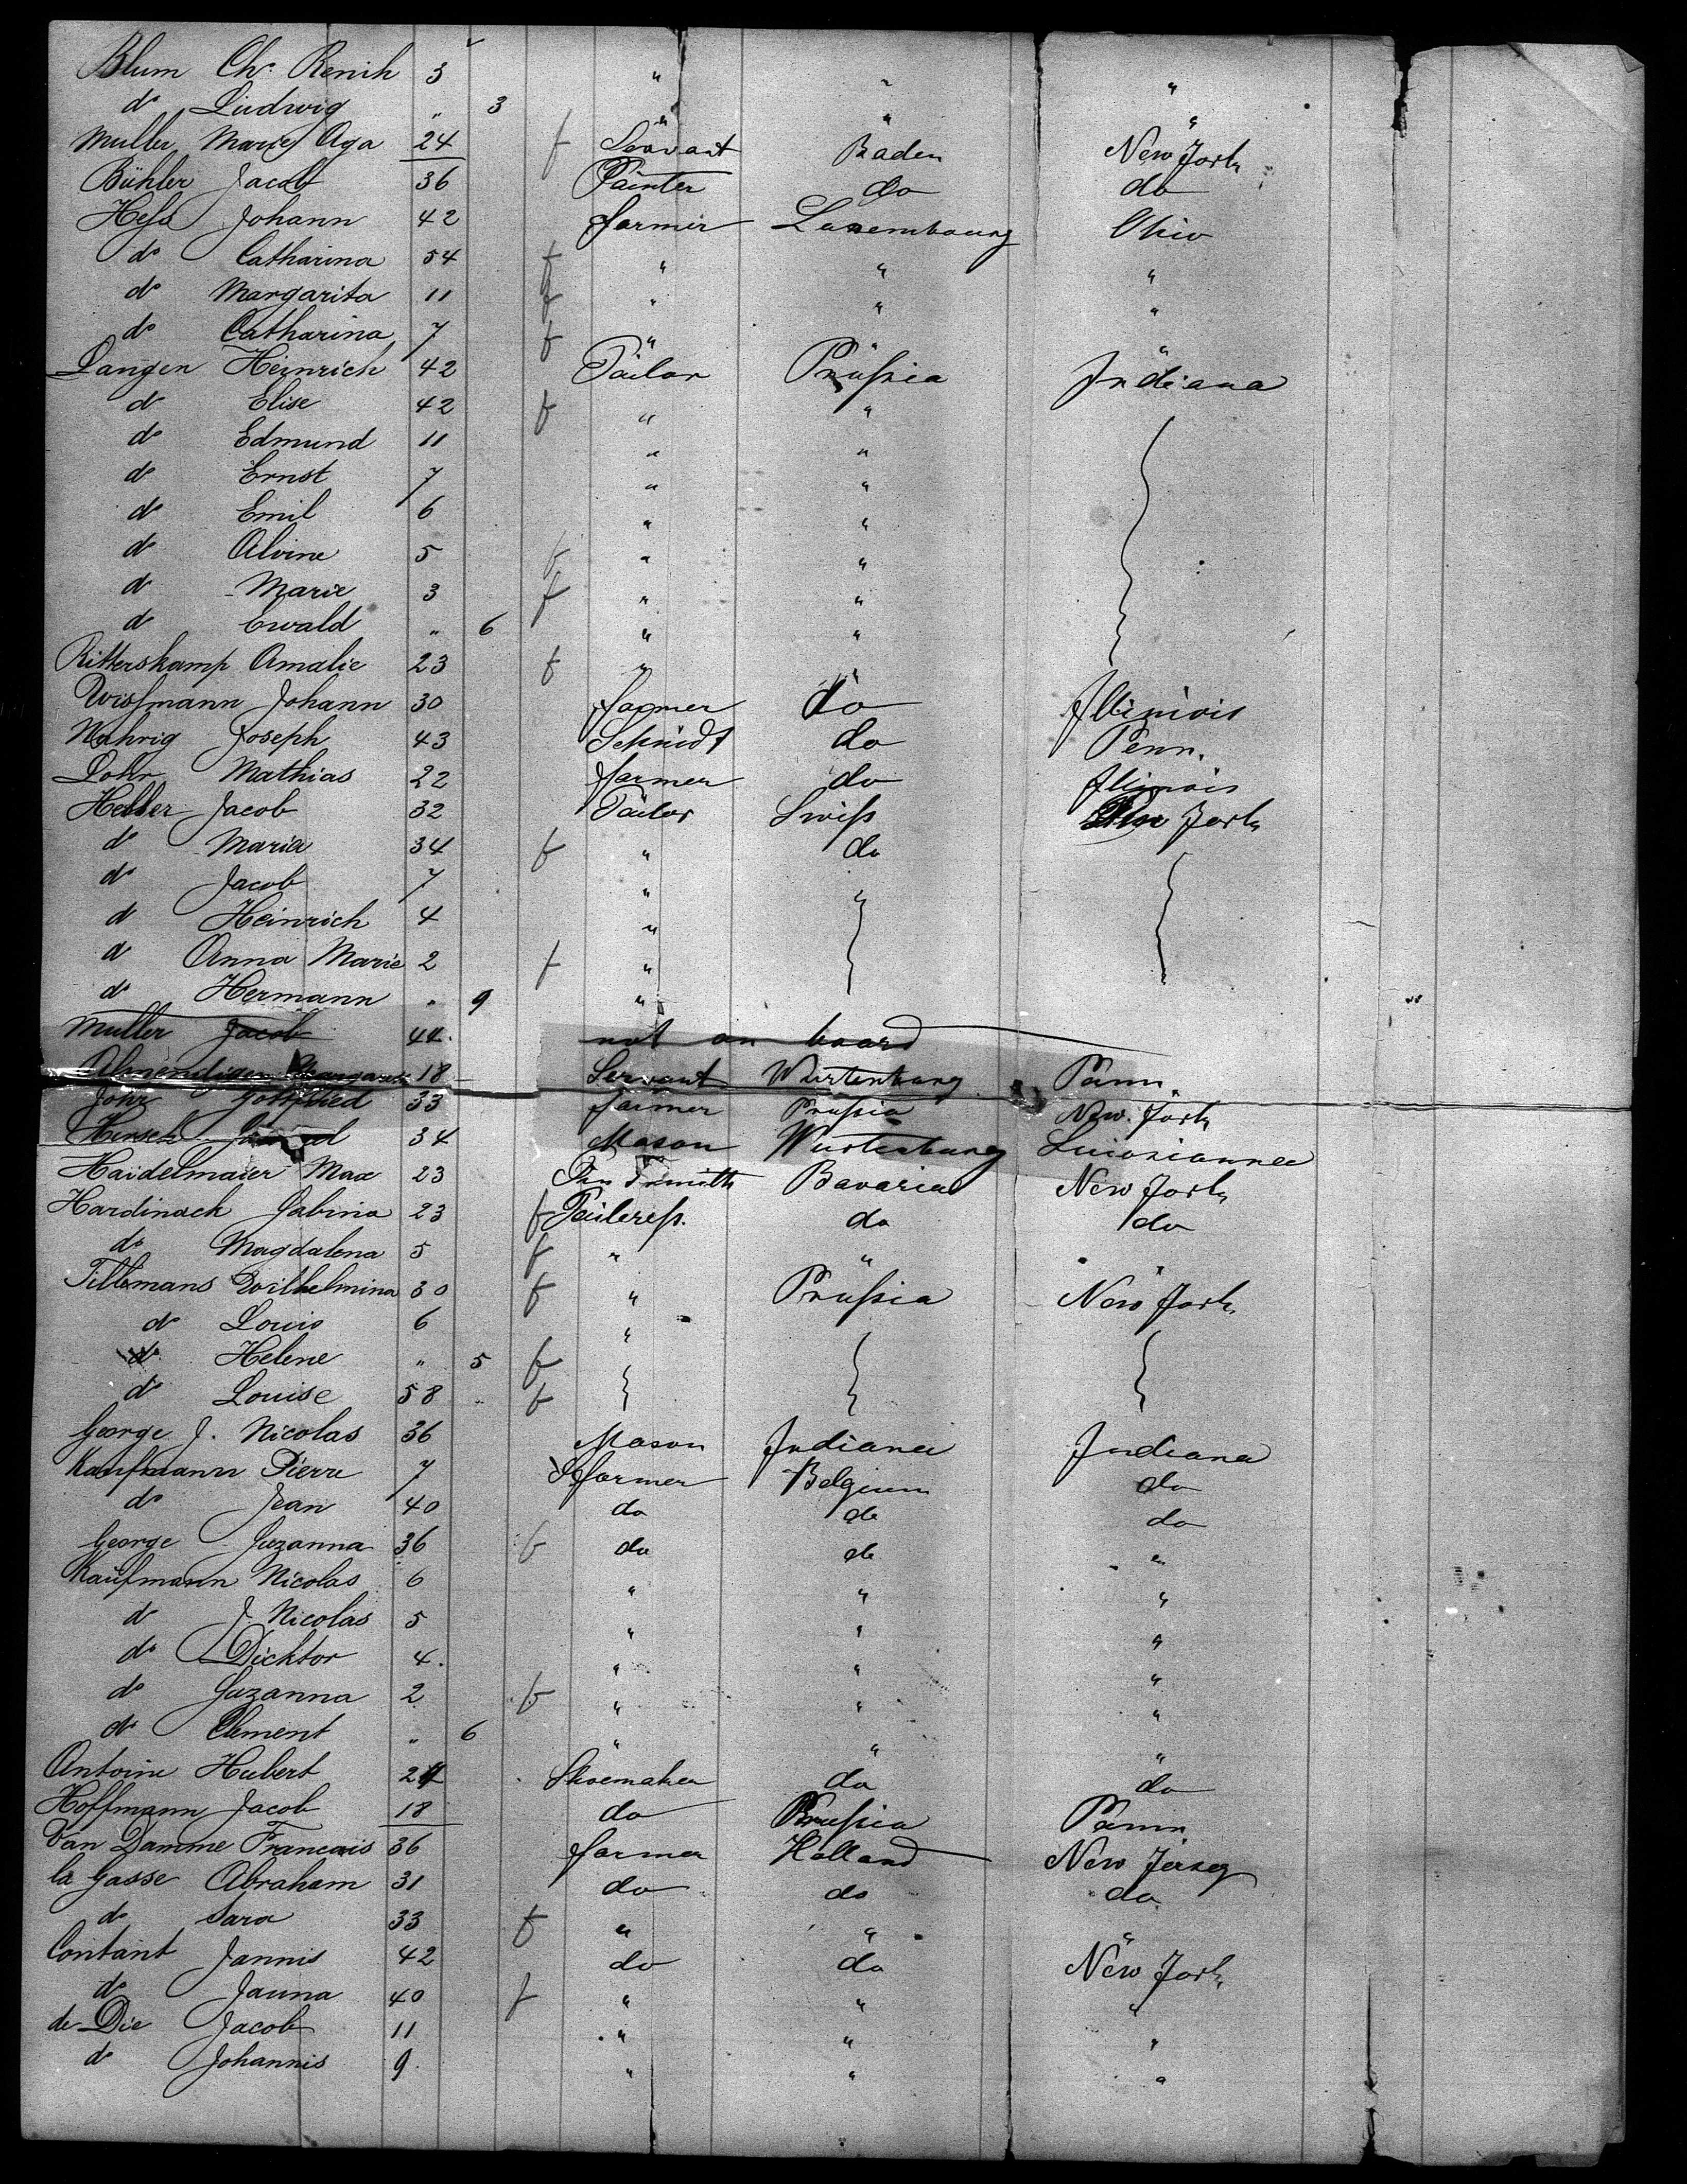 Blum Ch. Renih 3 " " "
do Ludwig " 3 " " "
Muller Marie Aga 24 f Servant Baden New York
Bühler Jacob 36 Painter do do
Hess Johann 42 farmer Luxembourg Ohio
do Catharina 54 f " " "
do Margarita 11 f " " "
do Catharina 7 f " " "
Langen Heinrich 42 Tailor Prussia Indiana
do Elise 42 f " "
do Edmund 11 " "
do Ernst 7 " "
do Emil 6 " "
do Alvine 5 f " "
do Marie 3 f " "
do Ewald " 6 " "
Ritterskamp Amalie 23 f " "
Wissmann Johann 30 farmer do Illinois
Nehrig Joseph 43 Schmidt do Penn.
Lohr Mathias 22 farmer do Illinois
Heller Jacob 32 Tailor Swiss York
do Maria 34 f " do
do Jacob 7 " "
do Heinrich 4 "
do Anna Marie 2 f "
do Hermann " 9 "
Muller Jacob 44. not on board
18 Servant Wurtenburg Penn.
Johr Gottfried 33 farmer Prussia New York
34 Mason Wurtenburg Luisiannea
Haidelmaier Max 23 Bavaria New York
Hardinack Sabina 23 f Taileress. do do
do Magdalena 5 f " " "
Tillemans Wilhelmina 30 f " Prussia New York
do Louis 6 "
do Helene " 5 f
do Louise 58 f
George J. Nicolas 36 Mason Indiana Indiana
Kaufmann Pierre 7 farmer Belgium do
do Jean 40 do do do
George Suzanna 36 f do do "
Kaufmann Nicolas 6 " " "
do J. Nicolas 5 " " "
do Dicktor 4. " " "
do Suzanna 2 f " " "
do Clement " 6 " " "
Antoine Hubert 24 Shoemaker do do
Hoffmann Jacob 18 do Prussia Penn
Van Damme Francais 36 farmer Holland New Jersey
la Gasse Abraham 31 do do do
do Sara 33 f " " "
Contant Jannis 42 do do New York
do Jauna 40 f " " "
de Die Jacob 11 " " "
do Johannis 9 " " "